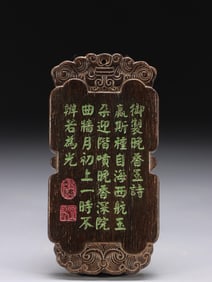 御製晚香玉詩
嬴斯種自海西航玉
朵迎階噴晚香深院
曲牆月初上一時不
辨若為光